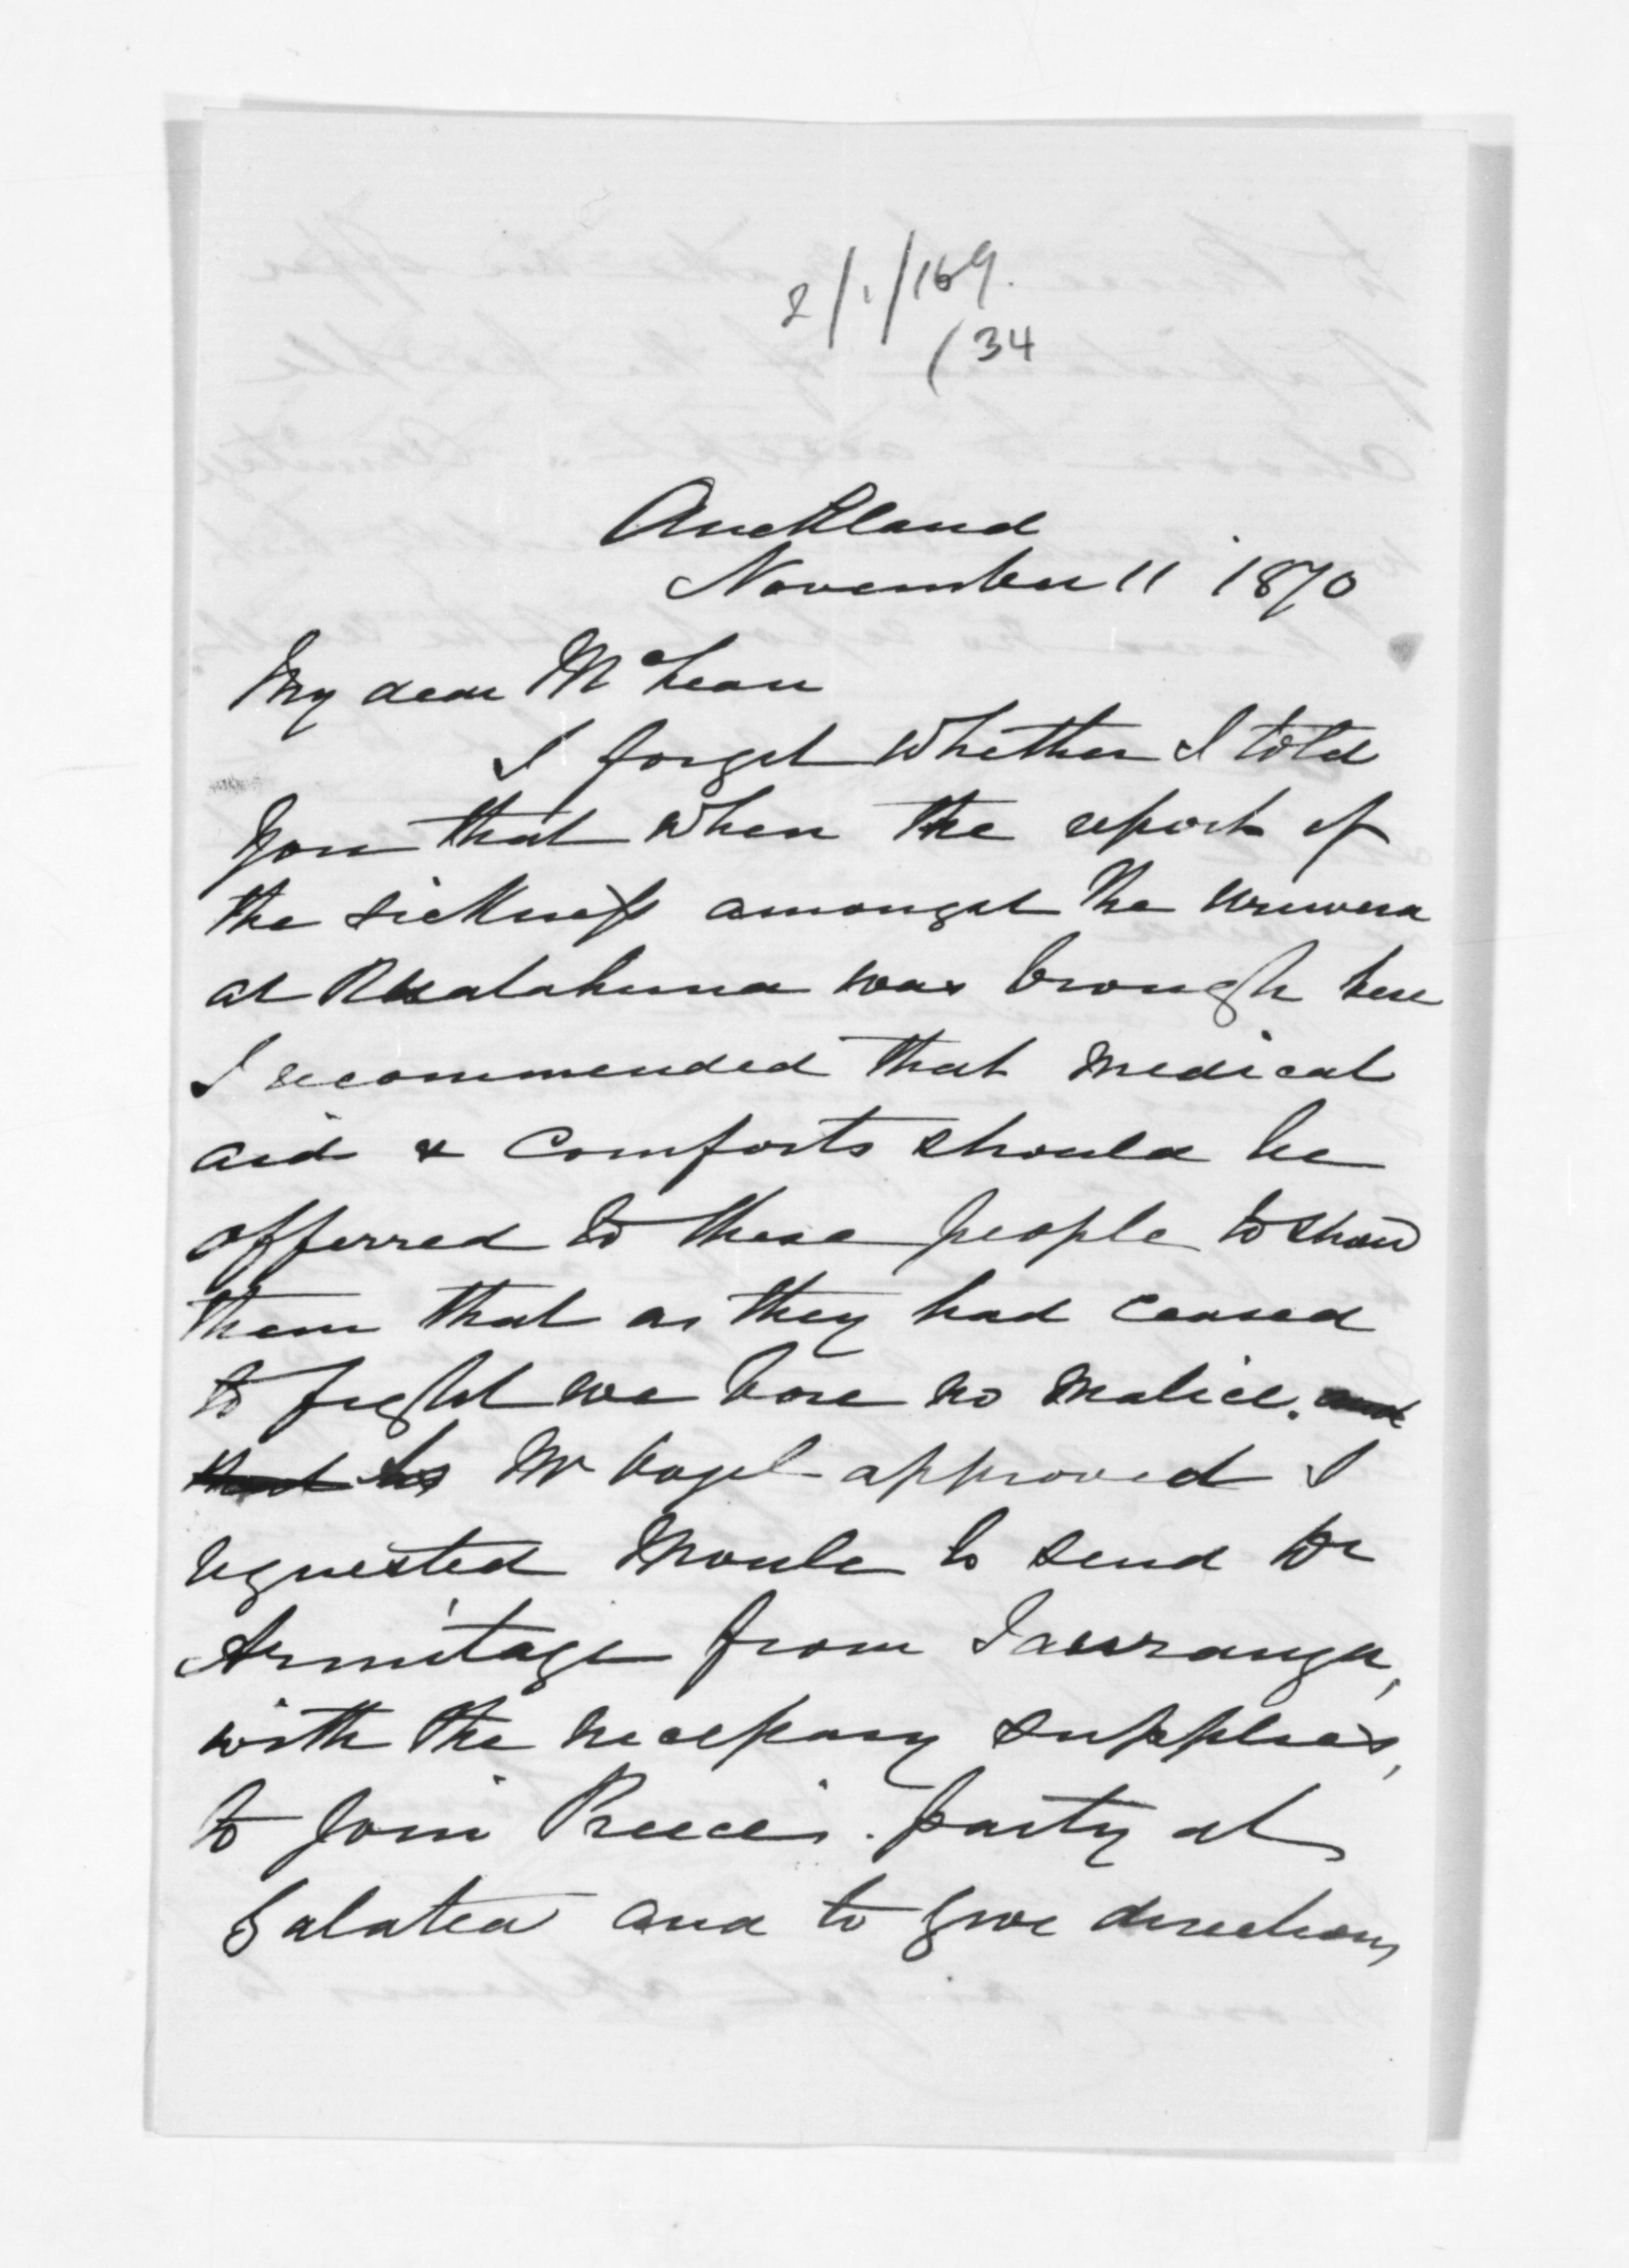 2/1/169.
(34
Auckland
November 11 1870
My dear McLean
I forget whether I told
you that when the report of
the sickness amongst the Urewera
at Ruatahuna was brough here
I recommended that medical
aid & comforts should be
offerred to these people to show
them that as they had ceased
to fight we bore no malice. and
that as Mr Vogel approved I
requested Moule to send Dr
Armitage from Tauranga,
with the necessary supplies,
to join Preece's party at
Galatea and to give directions